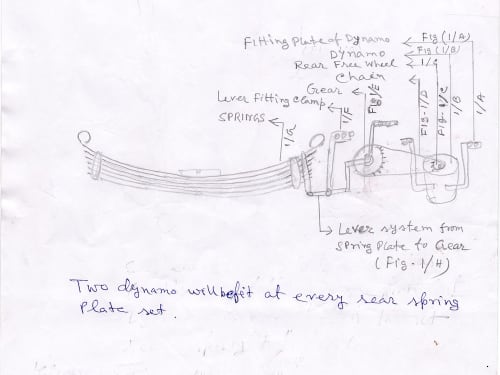 Fitting Plate of Dynamo Fig (1/A)
Dynamo Fig (1/B)
Rear Free Wheel 1/C
Chain
Gear
Lever Fitting Clamp
SPRINGS
1/G
1/F
Fig 1/E
Fig-1/D
Fig-1/C
1/B
1/A
Lever system from
Spring Plate to Gear
(Fig-1/H)
Two dynamo will be fit at every rear spring
Plate set.